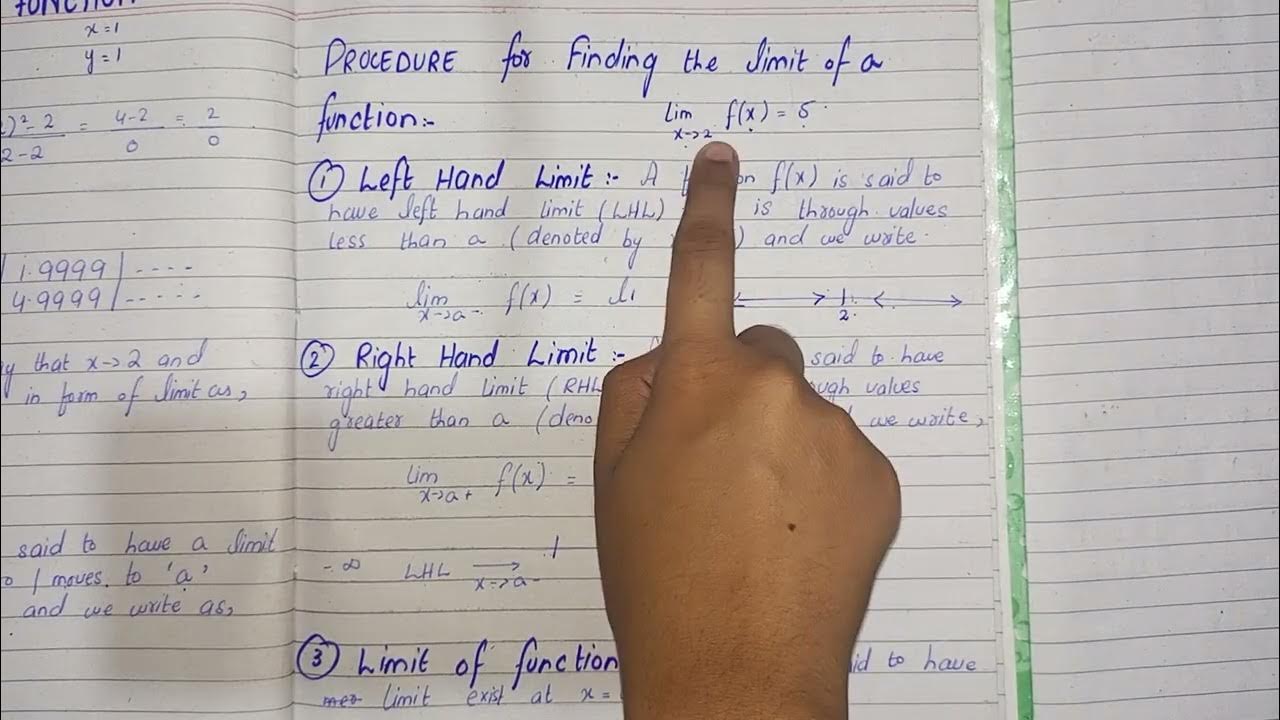 FUNCTION
x=1
y=1
)²-2 = 4-2 = 2
2-2 0 0
1.9999 | ----
4.9999 | -----
that x→2 and
in form of limit as,
said to have a limit
moves to 'a'
and we write as,
PROCEDURE for Finding the limit of a
function:-
lim f(x) = 5
x→2
① Left Hand Limit :- A f(x) is said to
have left hand limit (LHL) is through values
less than a (denoted by ) and we write.
lim f(x) = l₁
x→a-
2
② Right Hand Limit :- said to have
right hand limit (RHL values
greater than a (deno we write,
lim f(x) =
x→a+
-∞ LHL →
x→a-
③ Limit of function to have
limit exist at x =